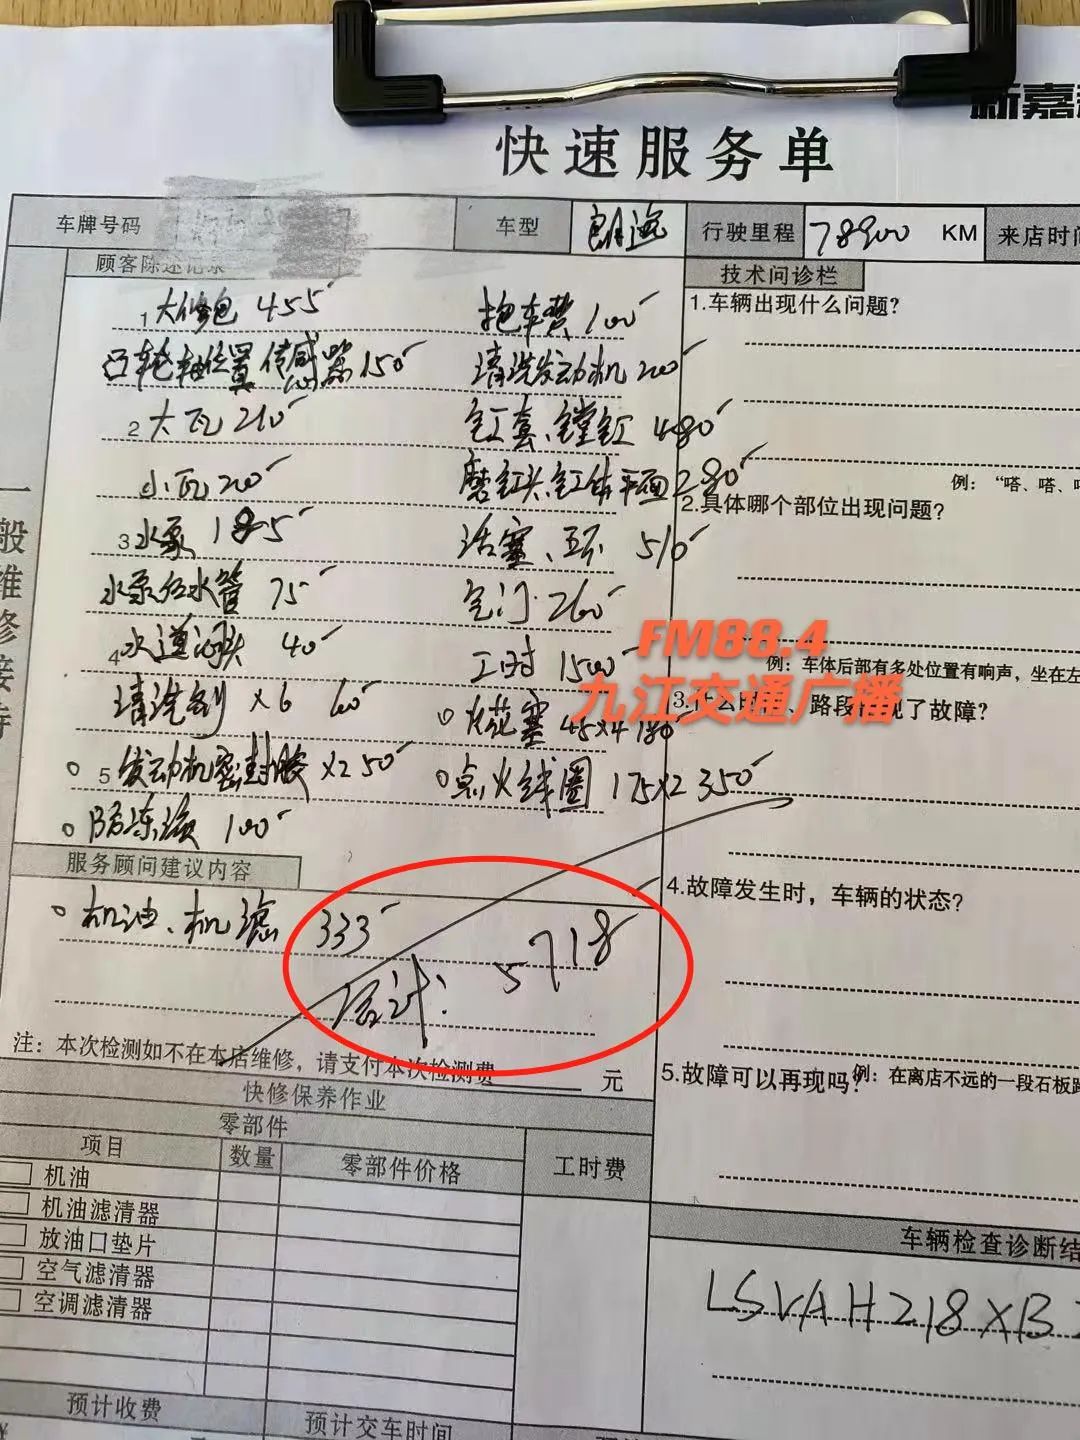 新嘉
快速服务单
车牌号码
车型 朗逸 行驶里程 78900 KM 来店时间
顾客陈述记录
1 大修包 455
凸轮轴位置传感器 150
2 大瓦 210
小瓦 200
3 水泵 185
水泵红水管 75
4 水道闷头 40
清洗剂 ×6 60
5 发动机密封胶 ×2 50
防冻液 100
拖车费 100
清洗发动机 200
缸套、镗缸 480
磨缸头、缸体平面 280
活塞、环 510
气门 260
工时 1500
火花塞 45×4 180
点火线圈 175×2 350
服务顾问建议内容
机油、机滤 333
合计: 5718
注：本次检测如不在本店维修，请支付本次检测费 元
一般维修接待
技术问诊栏
1.车辆出现什么问题?
例：“嗒、嗒、
2.具体哪个部位出现问题?
例：车体后部有多处位置有响声，坐在左
3.什么时 、路段 现了故障?
4.故障发生时，车辆的状态?
5.故障可以再现吗? 例：在离店不远的一段石板路
FM88.4
九江交通广播
快修保养作业
零部件
项目 数量 零部件价格 工时费
机油
机油滤清器
放油口垫片
空气滤清器
空调滤清器
预计收费 预计交车时间
车辆检查诊断结
LSVAH218XB2